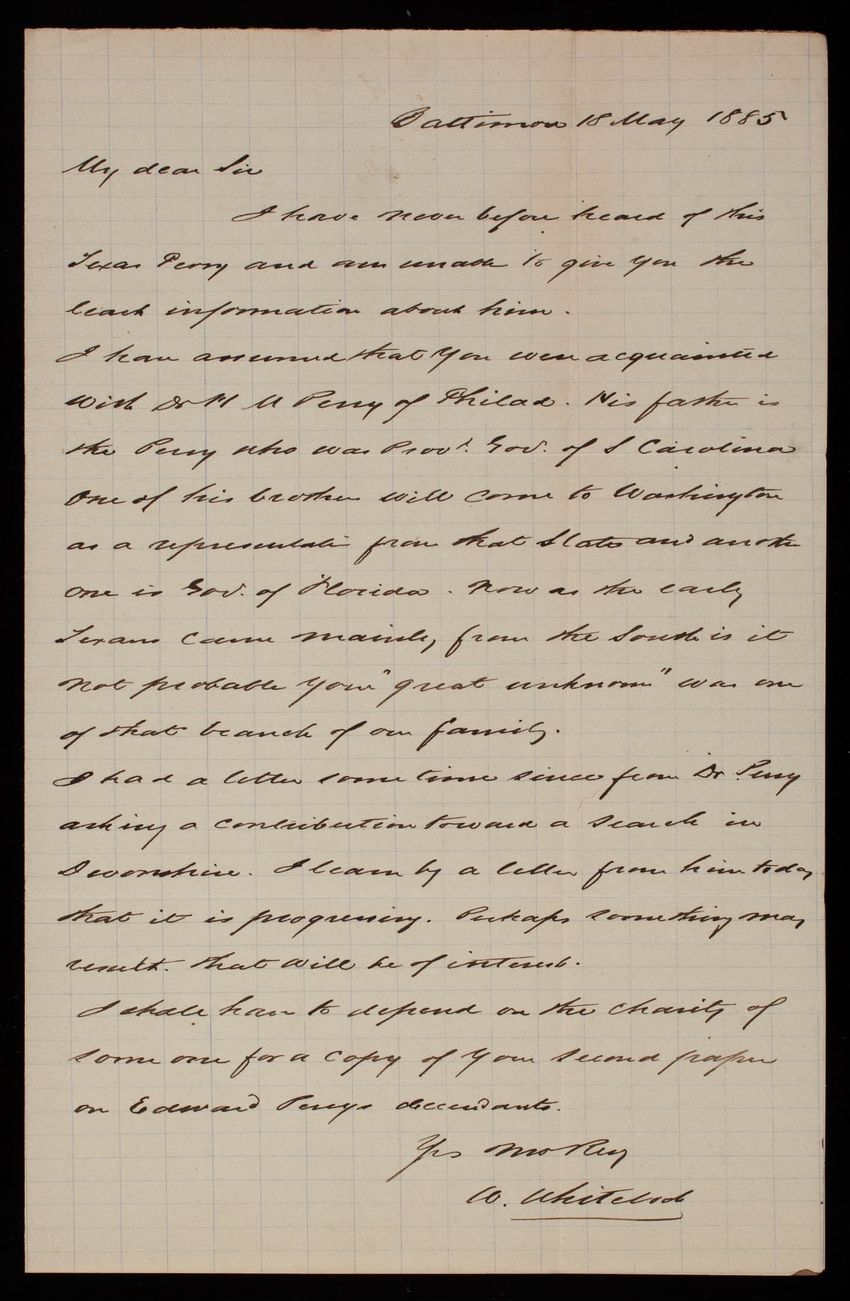 Baltimore 18 May 1885
My dear Sir
I have never before heard of this
Texas Perry and am unable to give you the
least information about him.
I have assumed that you were acquainted
with Dr H M Perry of Philad. His father is
the Perry who was Provl. Gov. of S Carolina
One of his brothers will come to Washington
as a representative from that State and another
one is Gov. of Florida. Now as the early
Texans came mainly from the South is it
not probable your "great unknown" was one
of that branch of our family.
I had a letter some time since from Dr Perry
asking a contribution toward a search in
Devonshire. I learn by a letter from him today
that it is progressing. Perhaps something may
result. that will be of interest.
I shall have to depend on the charity of
some one for a copy of your second paper
on Edward Perrys decendants.
Yrs Mo Resy
W.